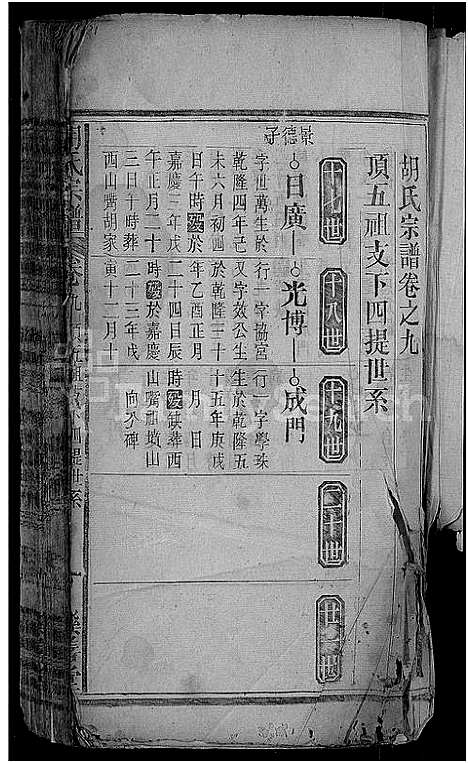 胡氏宗譜卷之九
頂五祖支下四提世系
十七世
十八世
十九世
二十世
廿一世
景德子
日廣
字世萬生於
乾隆四年己
未六月初四
日午時歿於
嘉慶三年戊
午正月二十
三日午時葬
西山嘴胡家
光博
行一字協宮
又字效公生
於乾隆三十
年乙酉正月
二十四日辰
時歿於嘉慶
二十三年戊
寅十二月十
成門
行一字學珠
生於乾隆五
十五年庚戌
月 日
時歿缺葬西
山嘴祖墩山
向介碑
氏宗譜
卷九